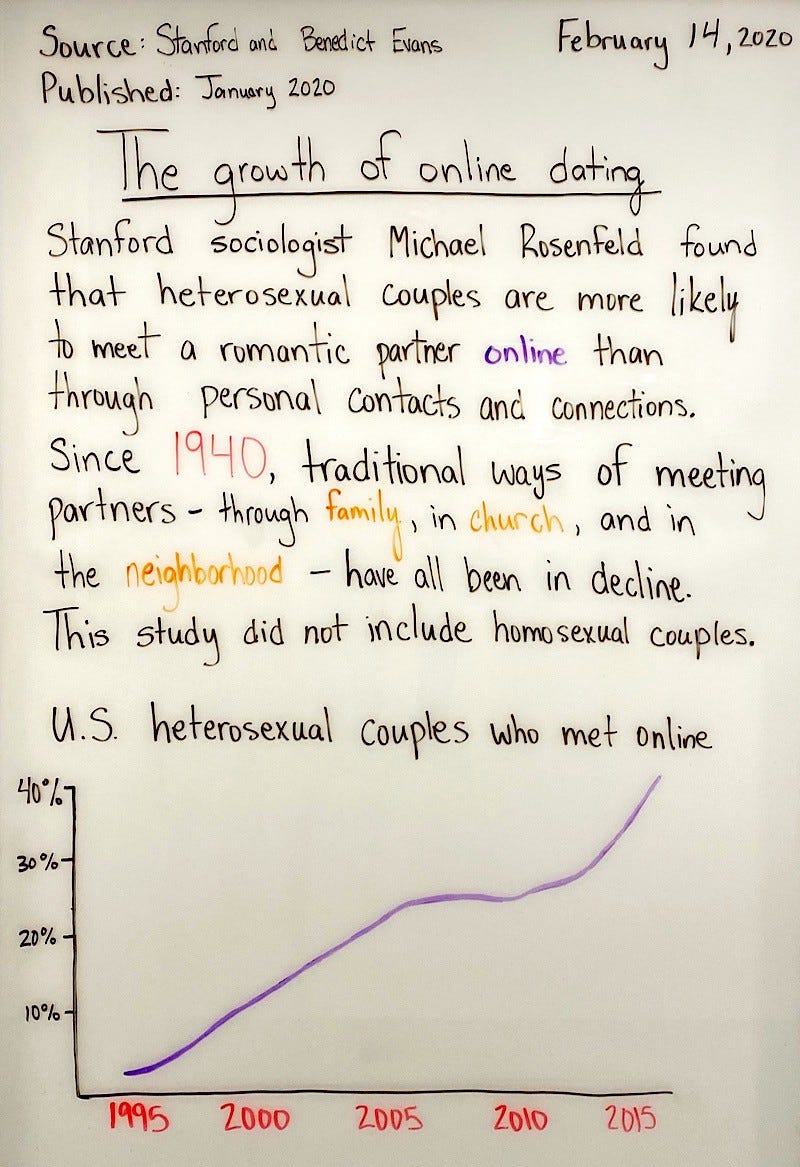 Source: Stanford and Benedict Evans
February 14, 2020
Published: January 2020
The growth of online dating
Stanford sociologist Michael Rosenfeld found
that heterosexual couples are more likely
to meet a romantic partner online than
through personal contacts and connections.
Since 1940, traditional ways of meeting
partners - through family, in church, and in
the neighborhood - have all been in decline.
This study did not include homosexual couples.
U.S. heterosexual couples who met online
40%
30%
20%
10%
1995 2000 2005 2010 2015